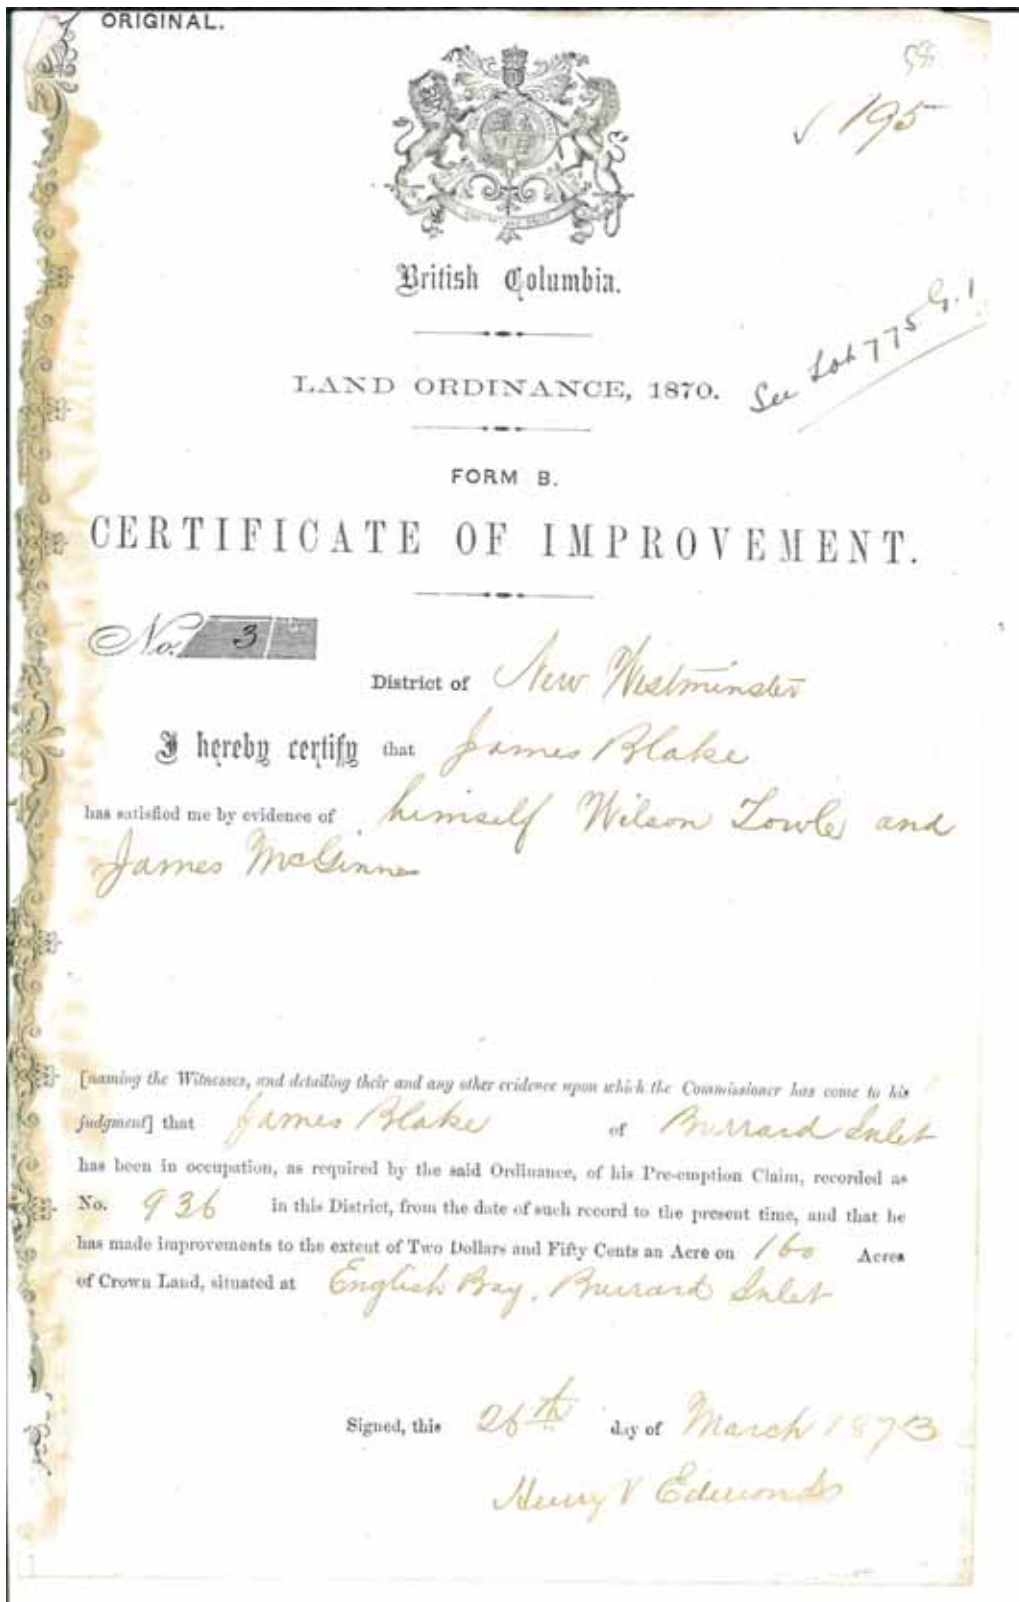 ORIGINAL.
58
✓ 195
British Columbia.
LAND ORDINANCE, 1870.
See Lot 775 G.1
FORM B.
CERTIFICATE OF IMPROVEMENT.
No. 3
District of New Westminster
I hereby certify that James Blake
has satisfied me by evidence of himself Wilson Towle and
James McGinnes
[naming the Witnesses, and detailing their and any other evidence upon which the Commissioner has come to his
judgment] that James Blake of Burrard Inlet
has been in occupation, as required by the said Ordinance, of his Pre-emption Claim, recorded as
No. 936 in this District, from the date of such record to the present time, and that he
has made improvements to the extent of Two Dollars and Fifty Cents an Acre on 160 Acres
of Crown Land, situated at English Bay, Burrard Inlet
Signed, this 26th day of March 1873
Henry V Edmonds